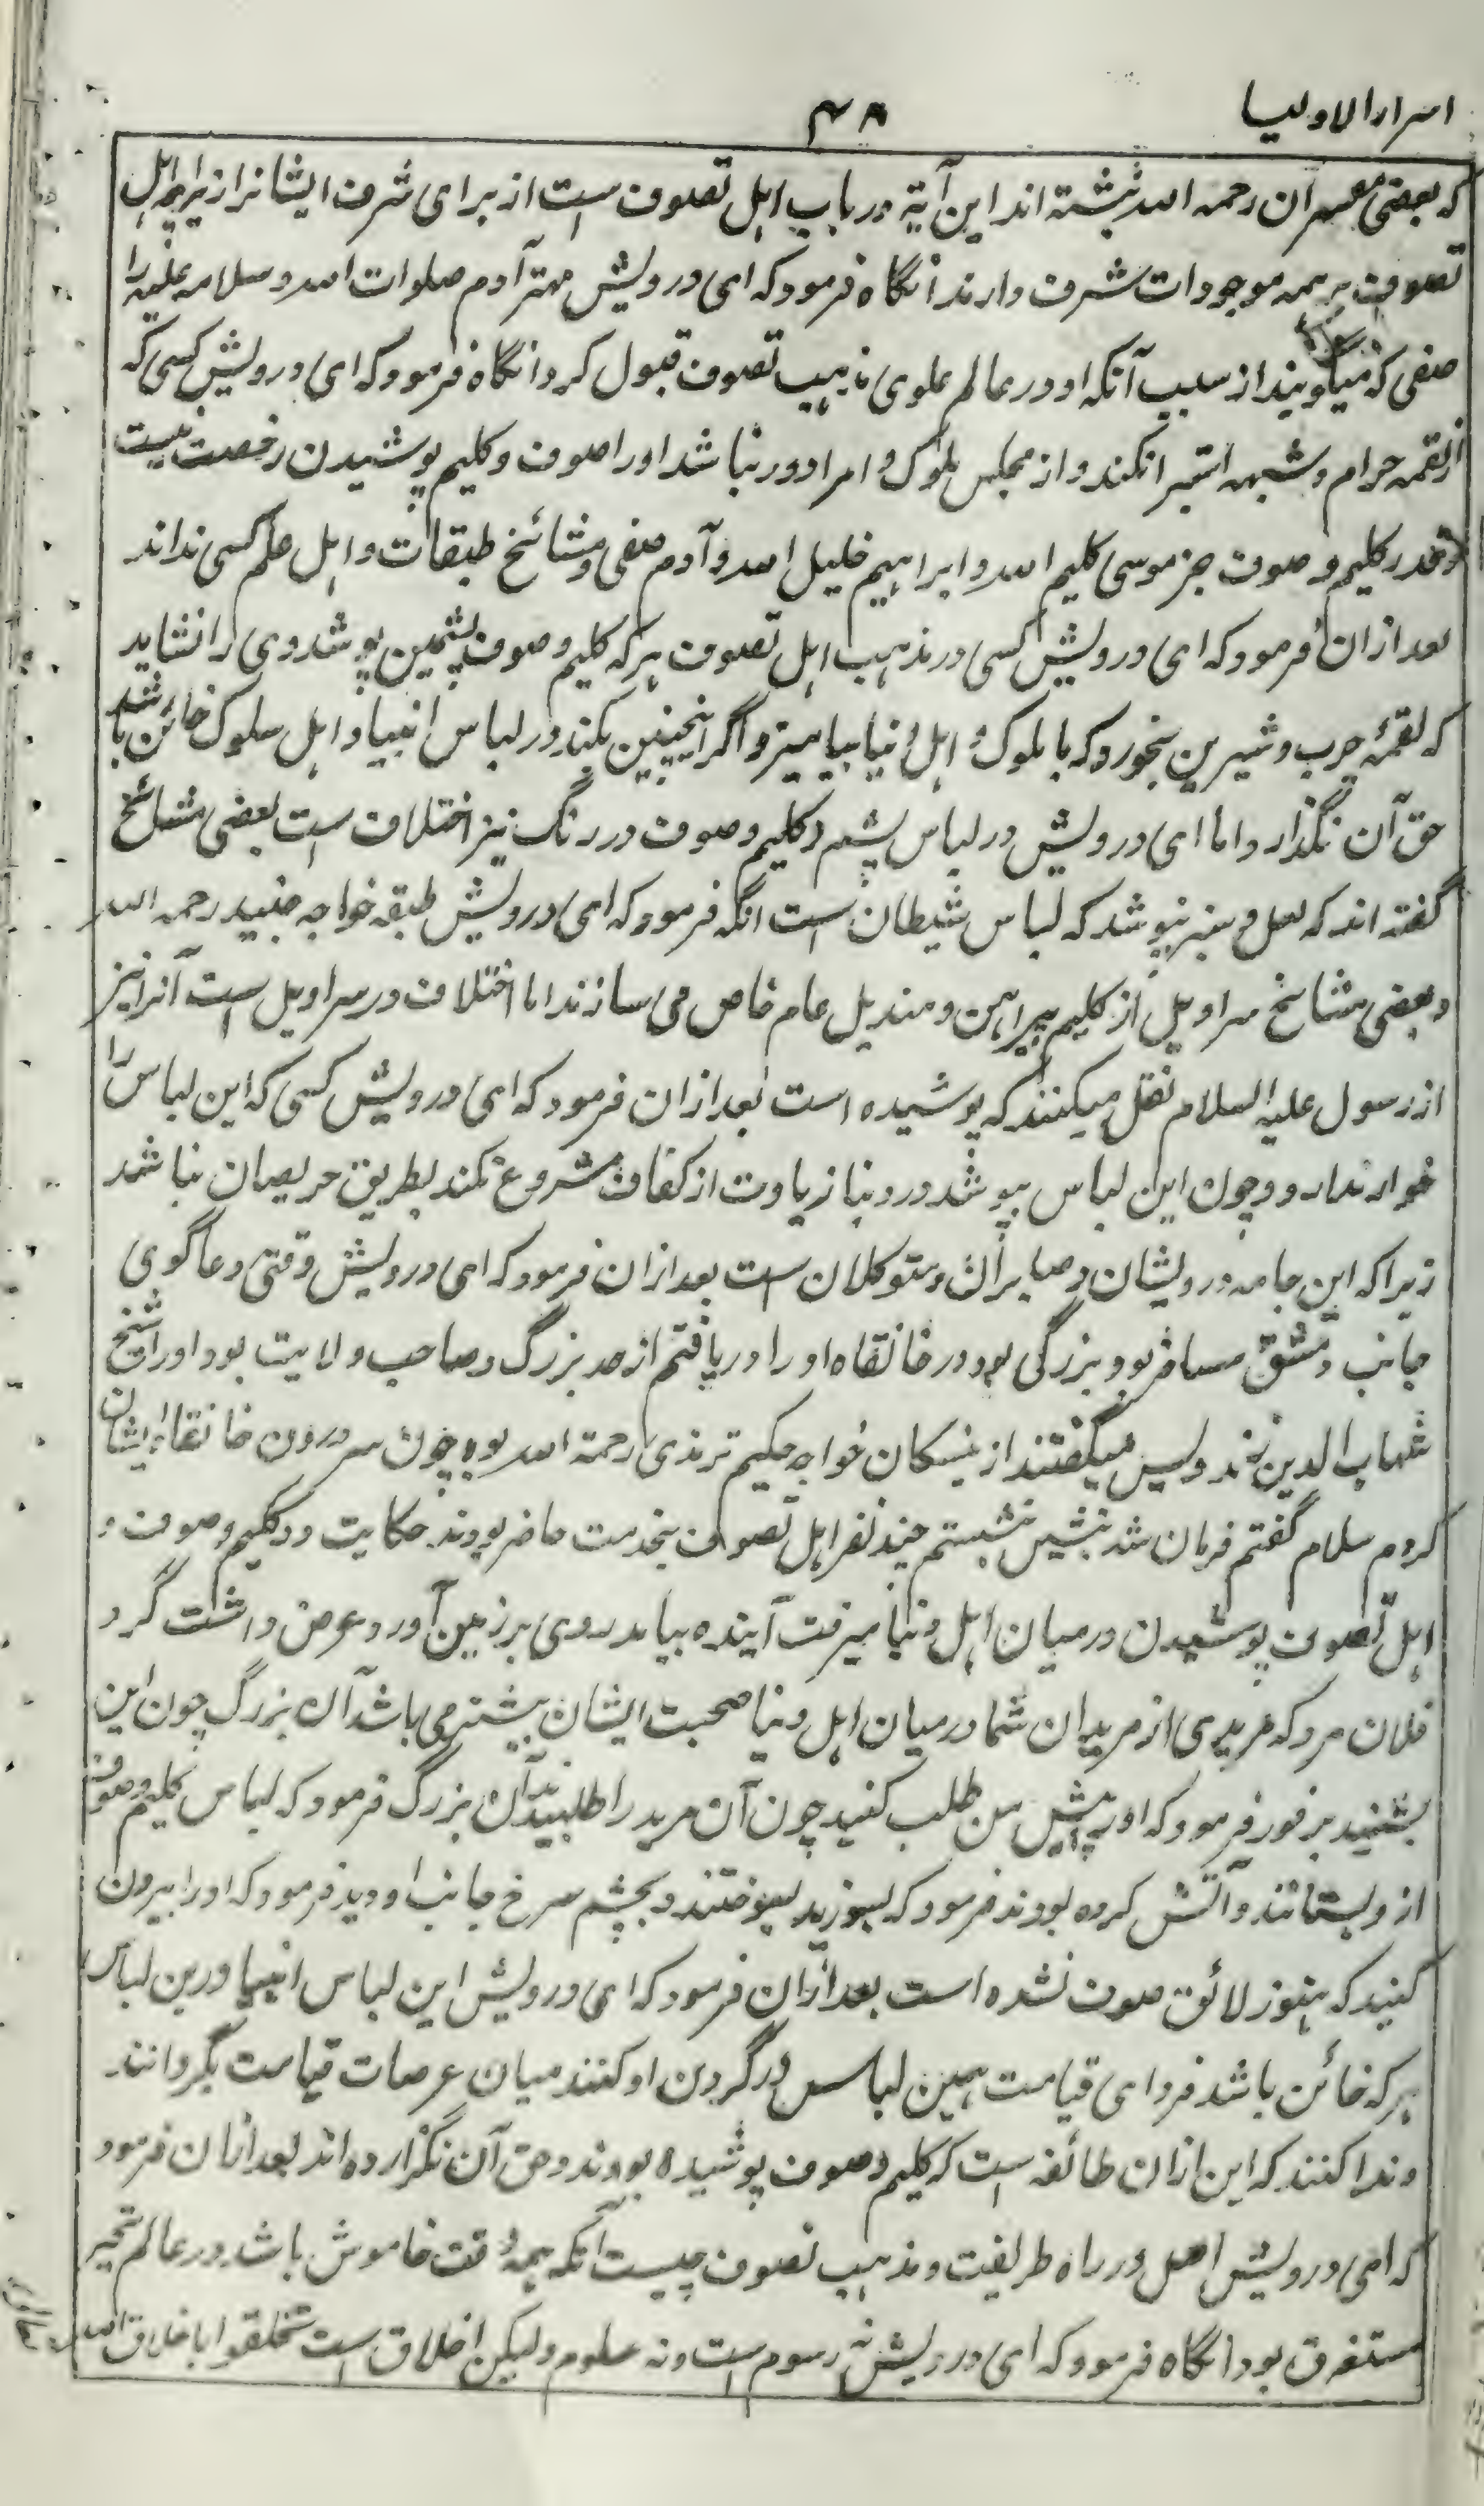 اسرار الاولیا
۴۸
که بعضی مفسران رحمه الله نبشته اند این آیة در باب اهل تصوف است از برای شرف ایشانرا زیرا چه اهل
تصوف بر همه موجودات شرف دارند آنگاه فرمود که ای درویش مهتر آدم صلوات الله و سلامه علیه را
صفی که میگویند از سبب آنکه او در عالم علوی مذهب تصوف قبول کرد آنگاه فرمود که ای درویش کسی که
از لقمه حرام و شبهه استبرا نکند و از مجلس ملوک و امرا دور نباشد او را صوف و کلیم پوشیدن رخصت نیست
و قدر کلیم و صوف جز موسی کلیم الله و ابراهیم خلیل الله و آدم صفی و مشائخ طبقات و اهل علم کسی نداند
بعد ازان فرمود که ای درویش کسی در مذهب اهل تصوف هر که کلیم و صوف پشمین پوشد وی را نشاید
که لقمهٔ چرب و شیرین بخورد که با ملوک و اهل دنیا بیامیزد و اگر اینچنین بکند در لباس انبیا و اهل سلوک خائن باشد
حق آن نگذارد اما ای درویش در لباس پشم و کلیم و صوف در رنگ نیز اختلاف است بعضی مشائخ
گفته اند که لعل و سبز نپوشد که لباس شیطان است آنگه فرمود که ای درویش طبقه خواجه جنید رحمه الله
و بعضی مشائخ سراویل از کلیم پیراهن و مندیل عام خاص می سازند اما اختلاف در سراویل است آنرا نیز
از رسول علیه السلام نقل میکنند که پوشیده است بعد ازان فرمود که ای درویش کسی که این لباس را
خوار ندارد و چون این لباس بپوشد در دنیا زیادت از کفاف مشروع نکند بطریق حریصان نباشد
زیرا که این جامه درویشان و صابران و متوکلان است بعد ازان فرمود که ای درویش وقتی دعاگوی
جانب دمشق مسافر بود بزرگی بود در خانقاه او را دریافتم از حد بزرگ و صاحب ولایت بود او را شیخ
شهاب الدین زندویس میگفتند از نبسکان خواجه حکیم ترمذی رحمة الله بود چون سر درون خانقاه ایشان
کردم سلام گفتم فرمان شد بنشین نشستم چند نفر اهل تصوف بخدمت حاضر بودند حکایت در کلیم و صوف و
اهل تصوف پوشیدن در میان اهل دنیا میرفت آینده بیامد روی بر زمین آورد و عرض داشت کرد
فلان مرد که مریدی از مریدان شما در میان اهل دنیا صحبت ایشان بیشتر می باشد آن بزرگ چون این
بشنید بر فور فرمود که او را پیش من طلب کنید چون آن مرید را طلبیدند آن بزرگ فرمود که لباس کلیم و صوف
ازو بستانند و آتش کرده بودند فرمود که بسوزید بسوختند و بچشم سرخ جانب او دید فرمود که او را بیرون
کنید که هنوز لائق صوف نشده است بعد ازان فرمود که ای درویش این لباس انبیا درین لباس
هر که خائن باشد فردای قیامت همین لباس در گردن او کنند میان عرصات قیامت بگردانند
و ندا کنند که این ازان طائفه است که کلیم و صوف پوشیده بودند و حق آن نگزارده اند بعد ازان فرمود
که ای درویش اصل در راه طریقت و مذهب تصوف چیست آنکه همه وقت خاموش باشد در عالم تحیر
مستغرق بود آنگاه فرمود که ای درویش نه رسوم است و نه علوم ولیکن اخلاق است تخلقوا باخلاق الله